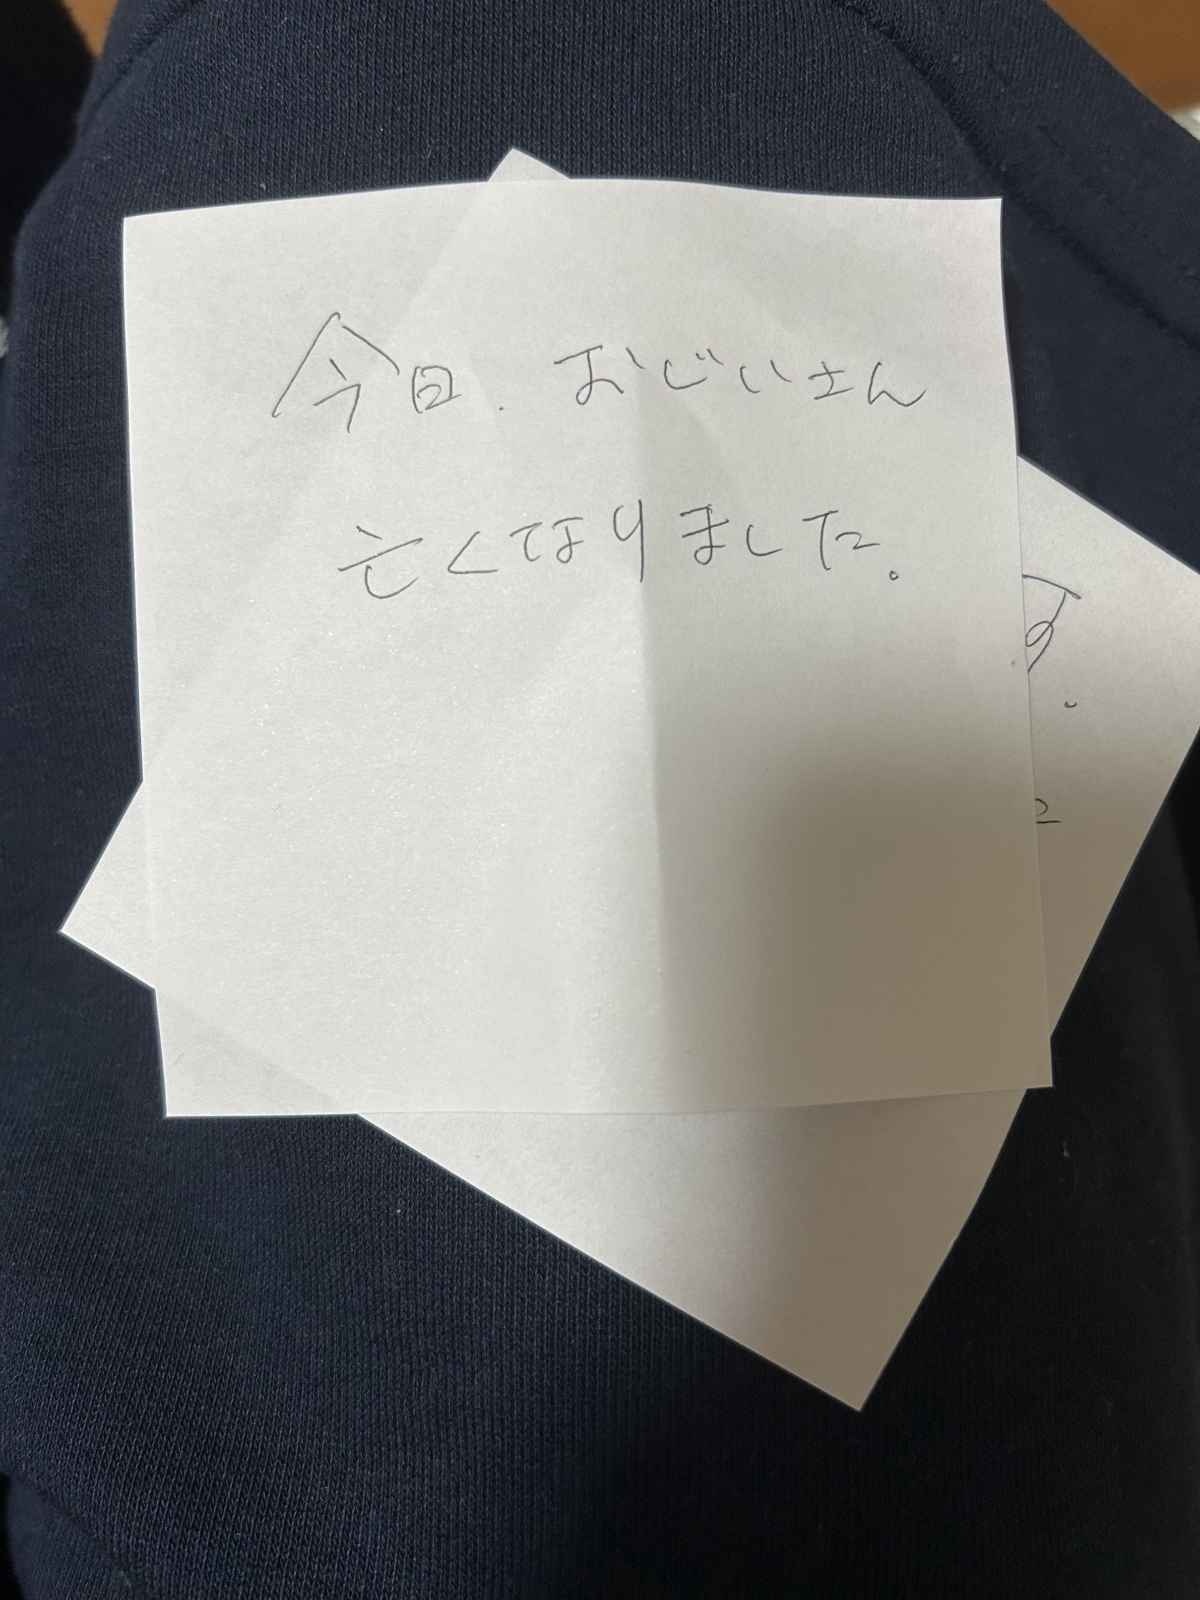 今日、おじいさん
亡くなりました。
す。